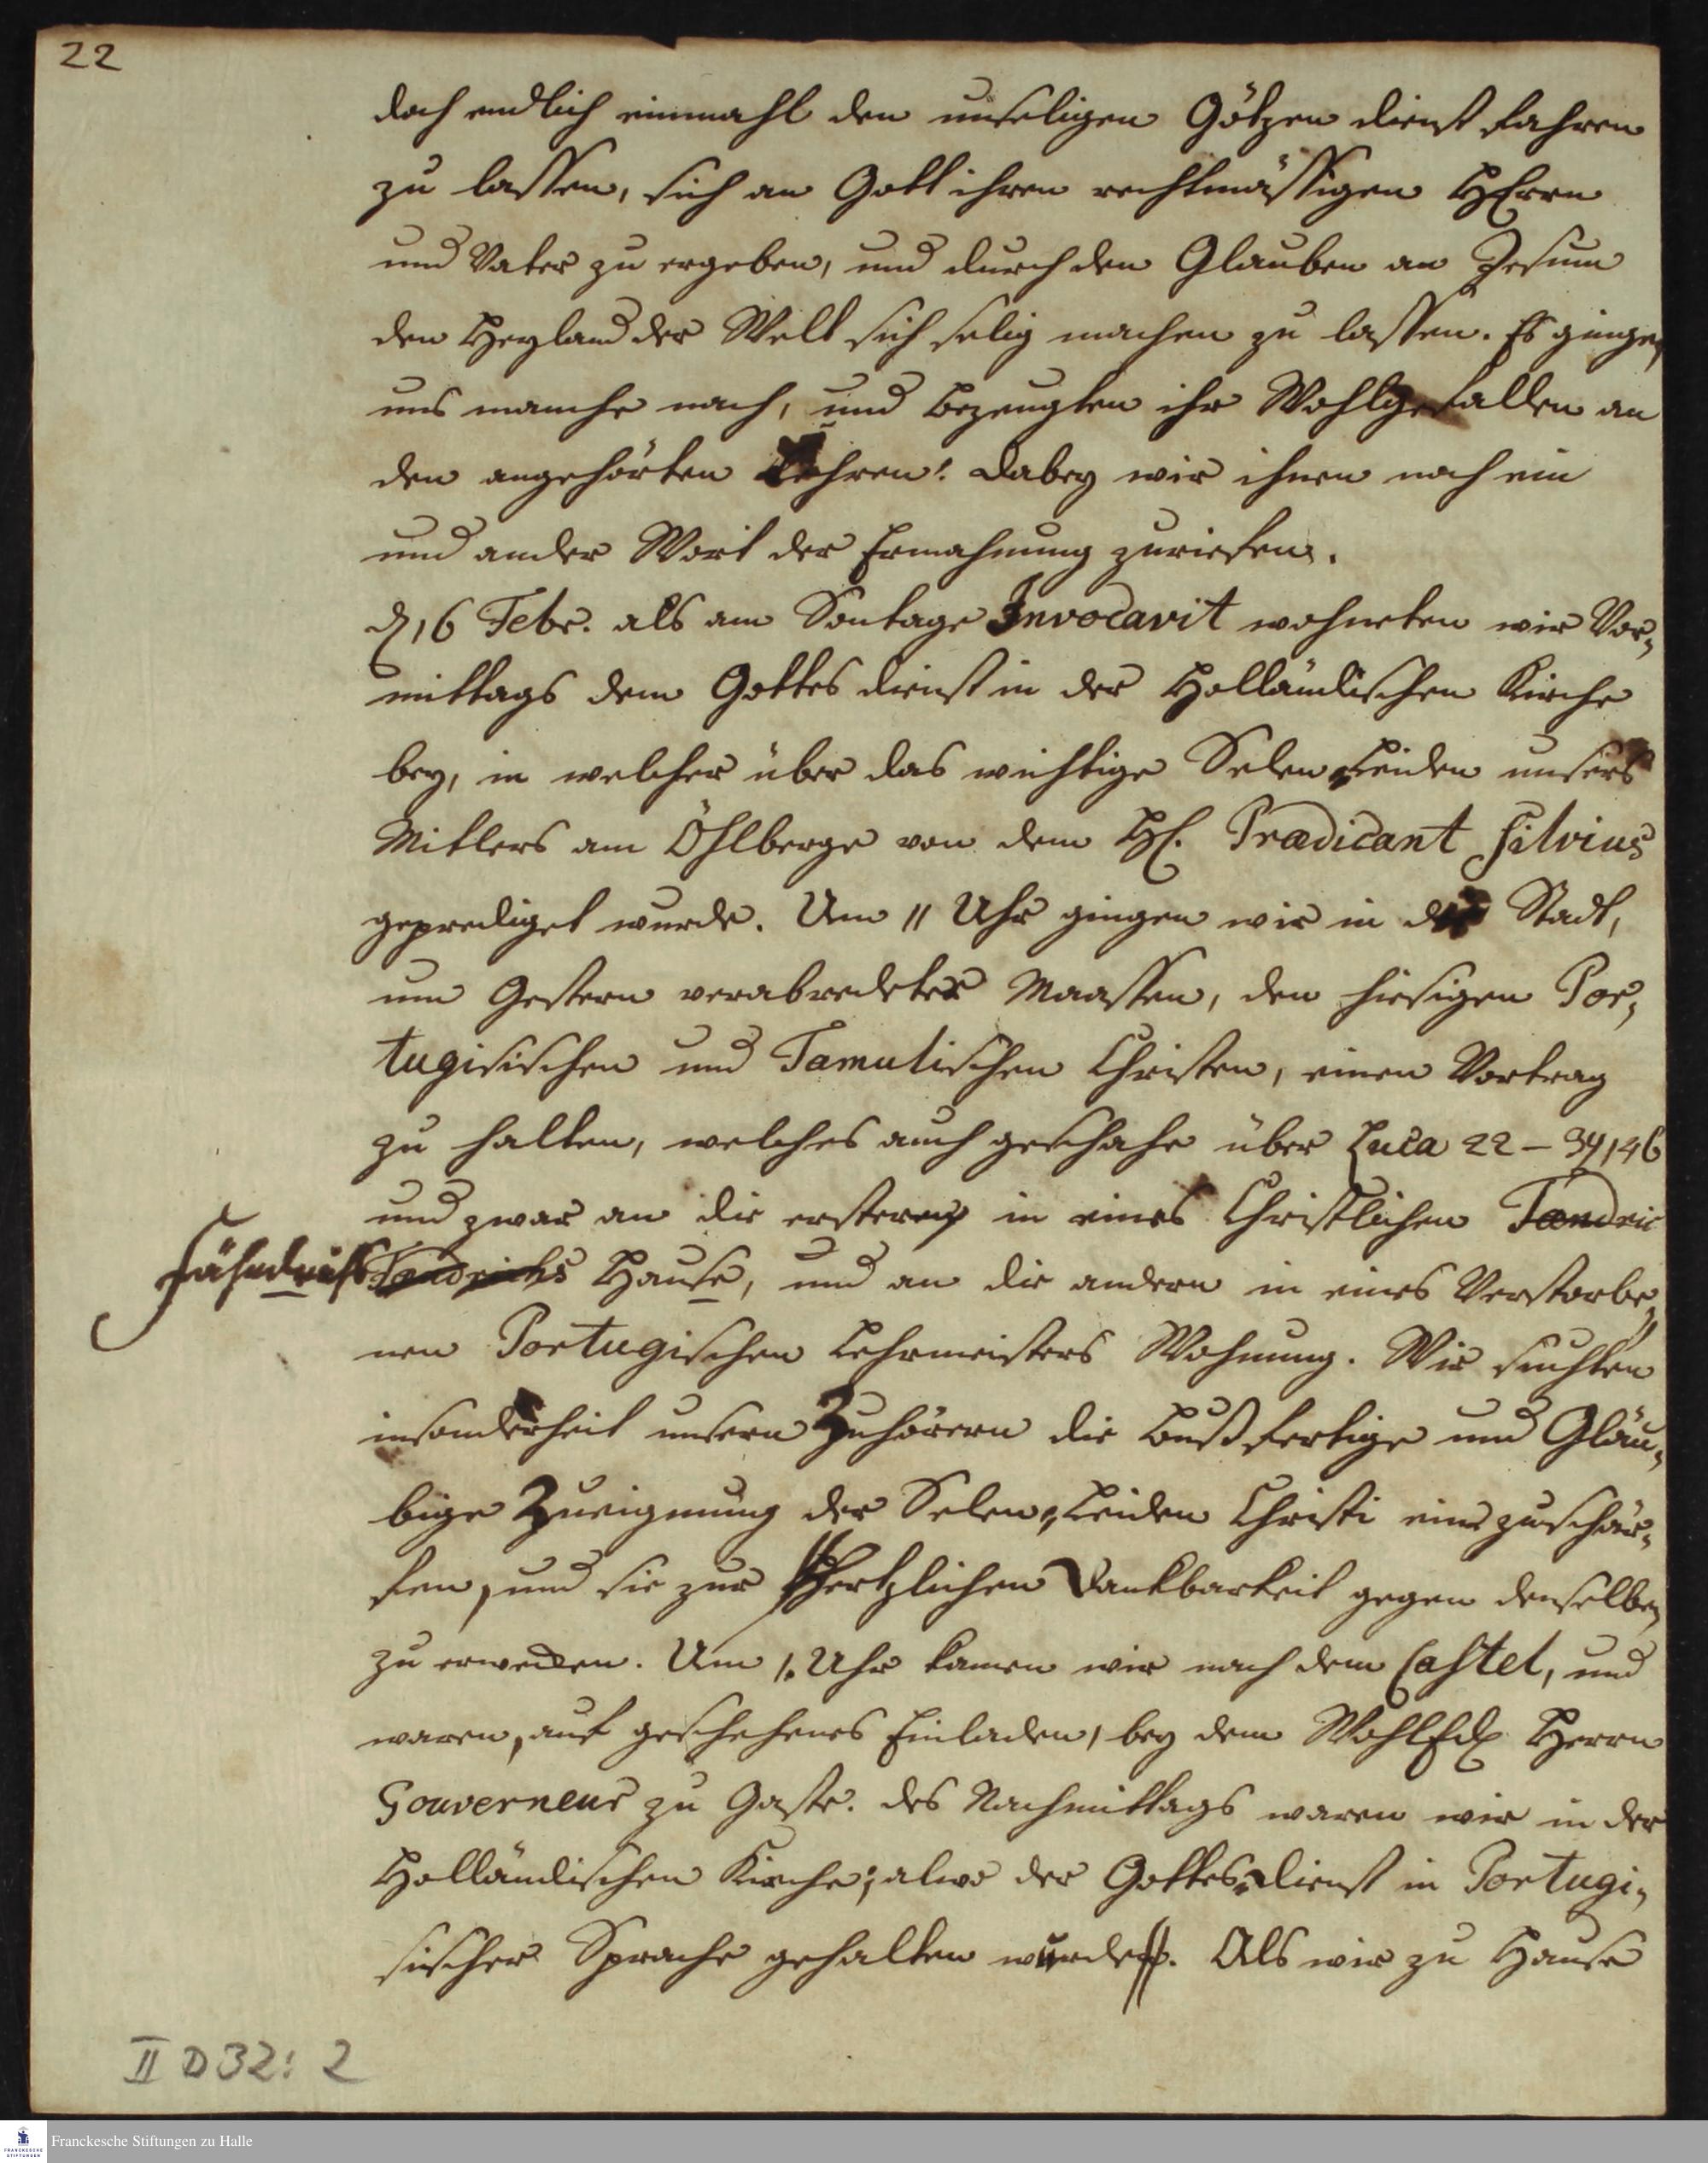 22
doch endlich einmahl den unseligen Götzen dienst fahren
zu lassen, sich an Gott ihren rechtmässigen HErrn
und Vater zu ergeben, und durch den Glauben an Jesum
den Heyland der Welt sich selig machen zu lassen. Es gingen
uns manche nach, und bezeugten ihr Wohlgefallen an
den angehörten Lehren: dabey wir ihnen noch ein
und ander Wort der Ermahnung zuriefen.
d 16 Febr. als am Sontage Invocavit wohneten wir Vor,
mittags dem Gottes dienst in der Holländischen Kirche
bey, in welcher über das wichtige Selen Leiden unsers
Mitlers am Öhlberge von dem H. Prædicant Silvius
geprediget wurde. Um 11 Uhr gingen wir in die Stadt,
um Gestern verabredeter Maassen, den hiesigen Por,
tugisischen und Tamulischen Christen, einen Vortrag
zu halten, welches auch geschahe über Luca 22 – 39,46
und zwar an die ersteren in eines Christlichen Fændric
Fähndrichs Fændrichs Hause, und an die andern in eines Verstorbe,
nen Portugischen Lehrmeisters Wohnung. Wir suchten
insonderheit unsern Zuhörern die bußfertige und Gläu,
bige Zueignung der Selen, Leiden Christi einzuschär,
fen, und sie zur Hertzlichen Dankbarkeit gegen denselben
zu erwecken. Um 1. Uhr kamen wir nach dem Castel, und
waren, auf geschehenes Einladen, bey dem WohlEdl Herrn
Gouverneur zu Gaste. des Nachmittags waren wir in der
Holländischen Kirche; alwo der Gottes dienst in Portugi,
sischer Sprache gehalten wurde. Als wir zu Hause
II D 32: 2
FRANCKESCHE STIFTUNGEN
Franckesche Stiftungen zu Halle